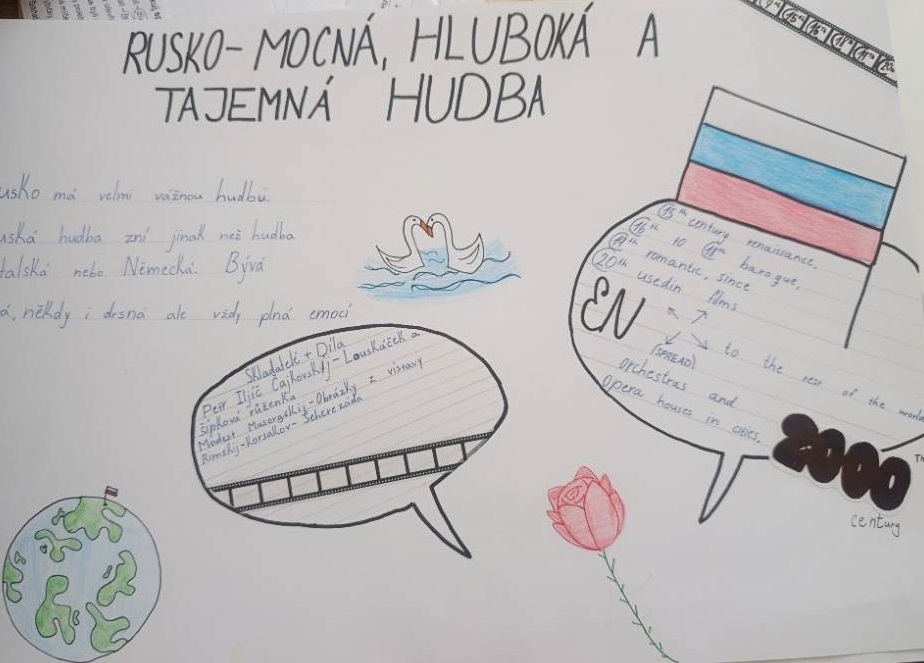 RUSKO-MOCNÁ, HLUBOKÁ A
TAJEMNÁ HUDBA
usko má velmi vážnou hudbu.
uská hudba zní jinak než hudba
talská nebo Německá. Bývá
á, někdy i drsná ale vždy plná emocí
Skladatelé + Díla
Petr Iljič Čajkovskij-Louskáček a
šípková růženka
Modest Musorgskij-Obrázky z výstavy
Rimskij-Korsakov-Šeherezáda
15th century renaissance.
16th to 18th baroque,
19th romantic, since
20th usedin films
EN
(SPREAD) to the rest of the world
orchestras and
Opera houses in cities.
2000
century
15th 16th